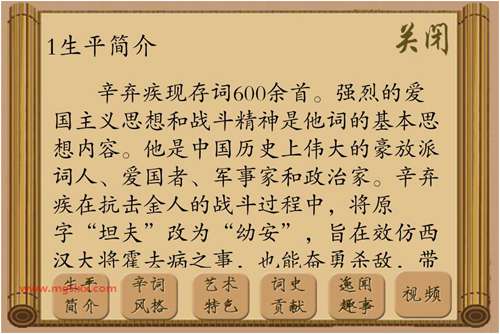 1生平简介
关闭
辛弃疾现存词600余首。强烈的爱
国主义思想和战斗精神是他词的基本思
想内容。他是中国历史上伟大的豪放派
词人、爱国者、军事家和政治家。辛弃
疾在抗击金人的战斗过程中，将原
字“坦夫”改为“幼安”，旨在效仿西
汉大将霍去病之事，也能奋勇杀敌，带
生平
简介
辛词
风格
艺术
特色
词史
贡献
逸闻
趣事
视频